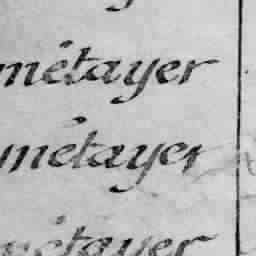 métayer
métayer
métayer